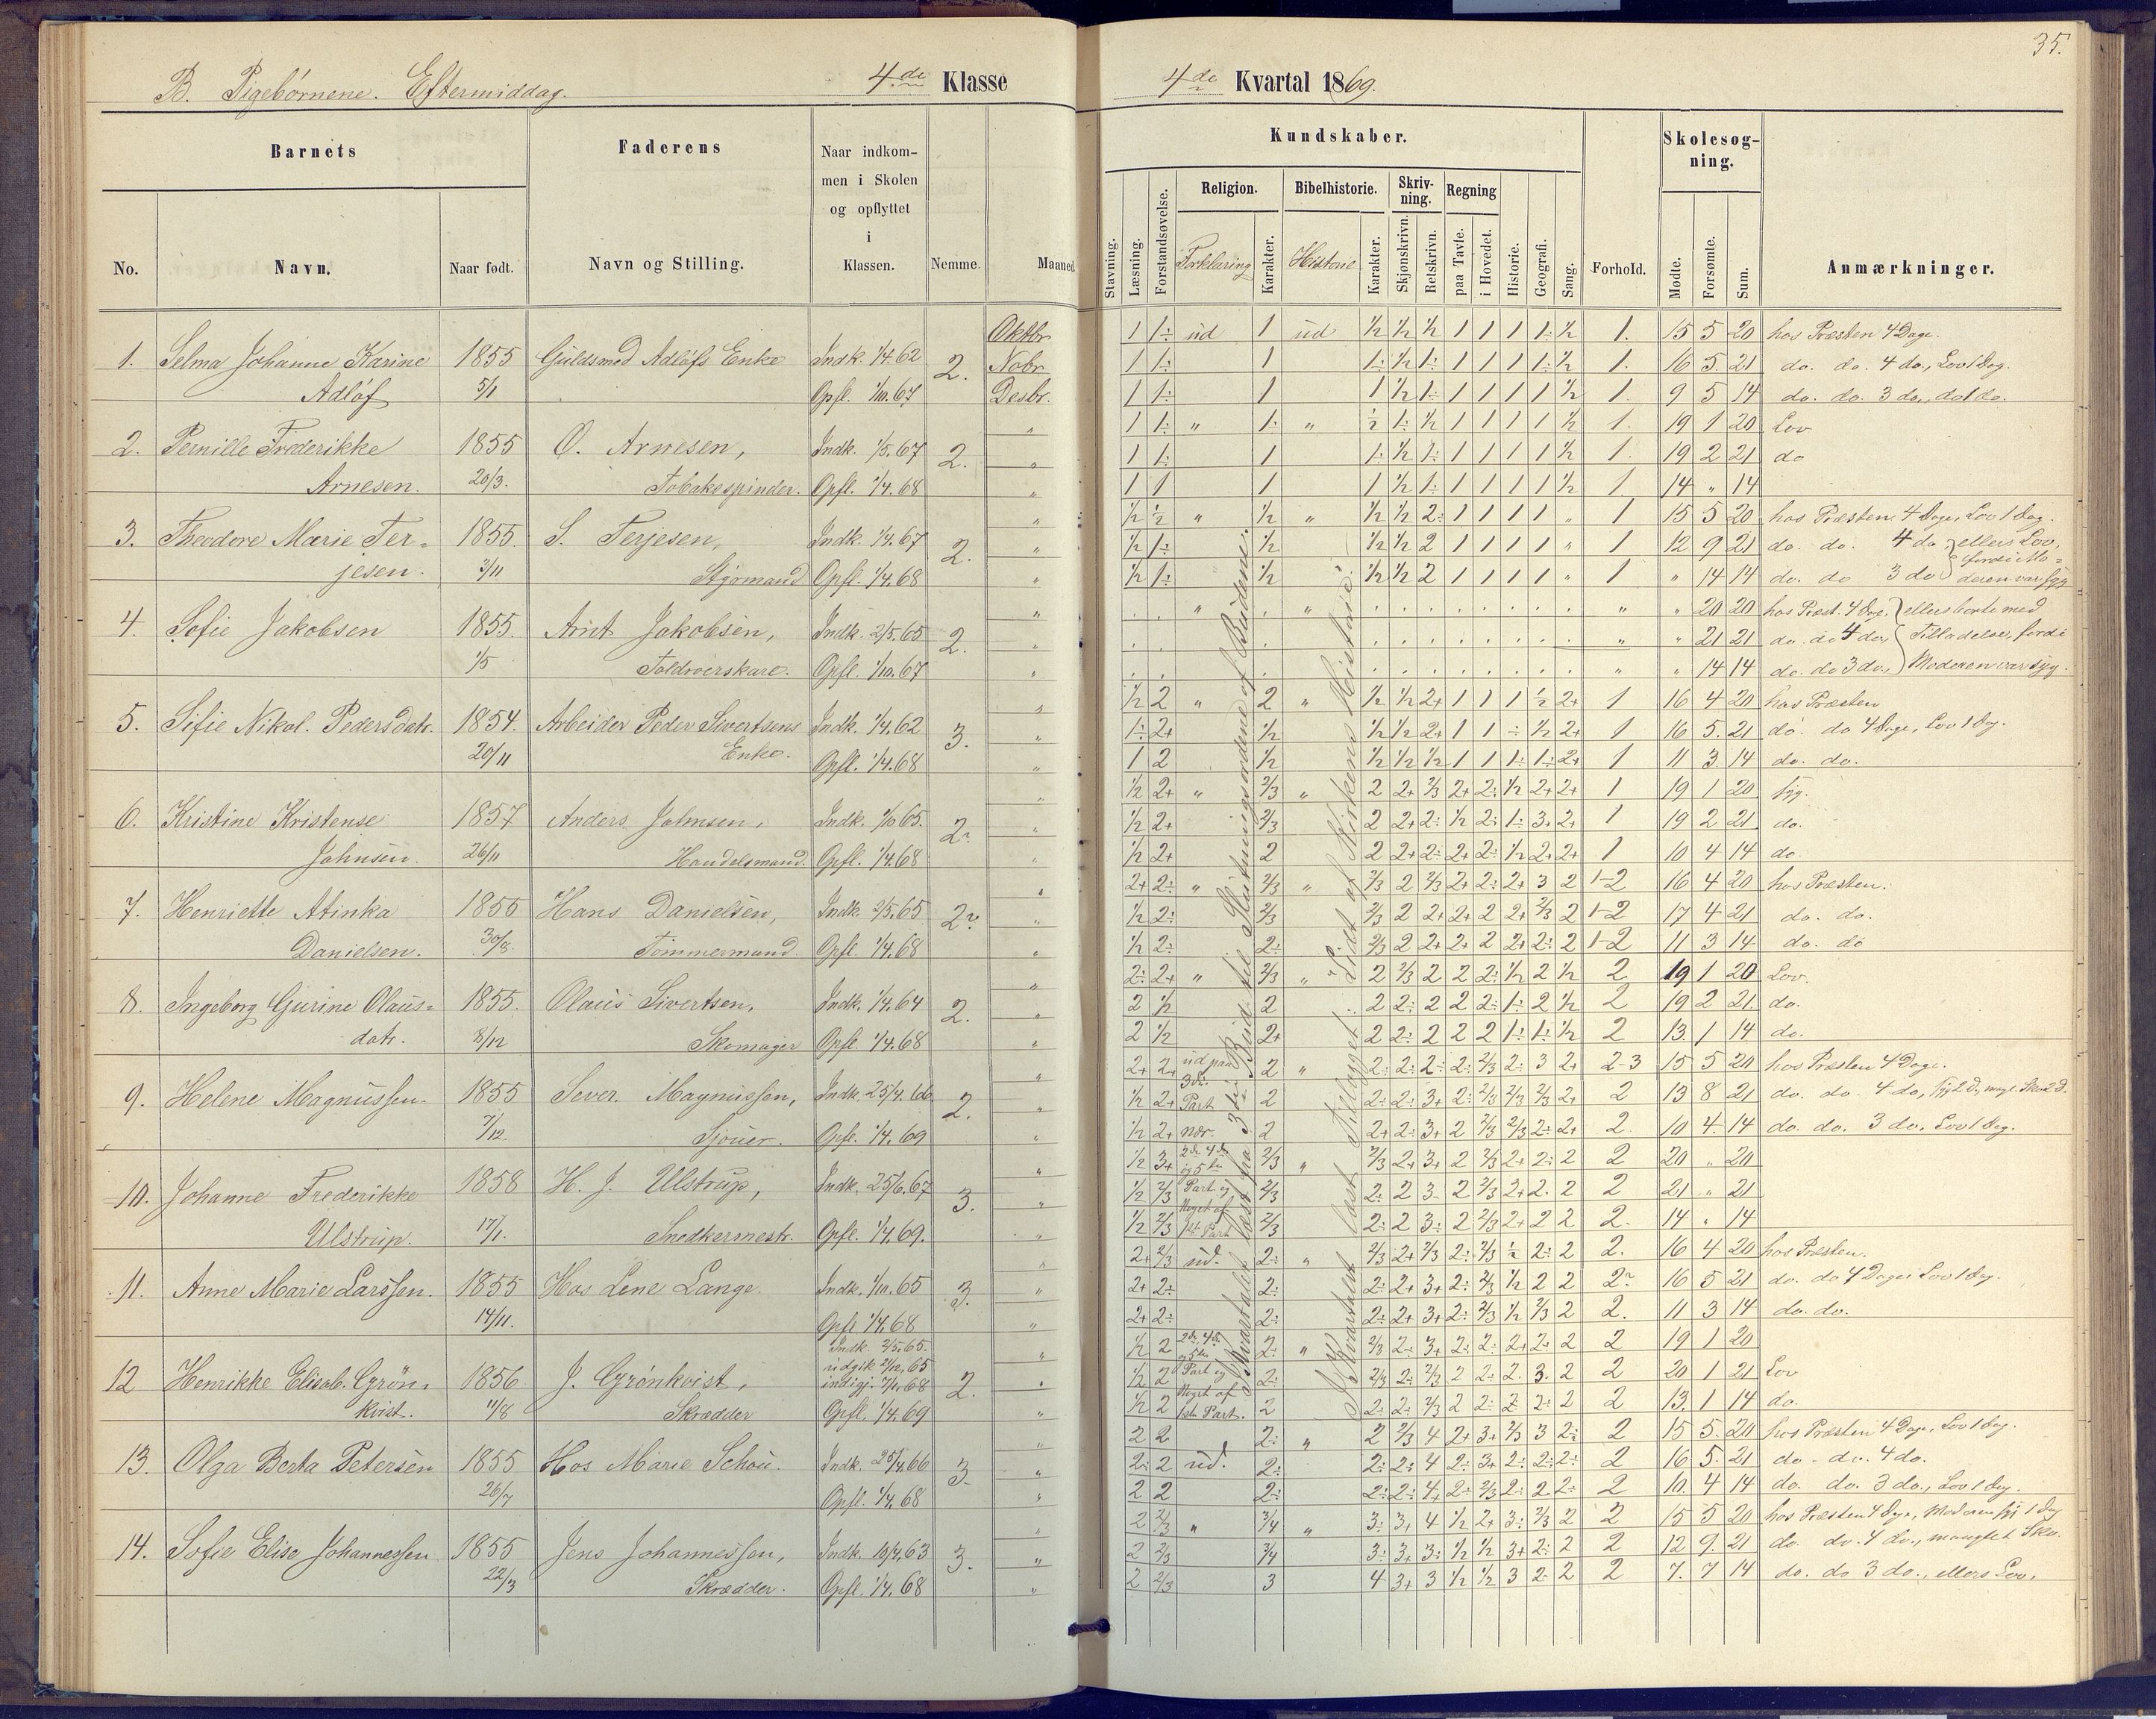 B. Pigebørnene. Eftermiddag. 4de Klasse
Barnets
Faderens
Naar indkom-
men i Skolen
og opflyttet
i
Klassen.
No. Navn. Naar født. Navn og Stilling. Nemme. Maaned.
1. Selma Johanne Karine 1855 Guldsmed Adløfs Enke Indk. 1/4.62 2. Oktbr
Adløf 5/1 Opfl. 1/10.67 Nobr
Desbr.
2. Pernille Frederikke 1855 O. Arnesen, Indk. 1/5.67 2. "
Arnesen. 20/3. Tobakspinder. Opfl. 1/4.68
3. Theodore Marie Ter= 1855 S. Terjesen, Indk. 1/4.67 2. "
jesen. 3/11 Styrmand Opfl. 1/4.68
4. Sofie Jakobsen 1855. Arnt Jakobsen, Indk. 2/5.65 2. "
1/5 Toldroerskarl. Opfl. 1/10.67
5. Sofie Nikol. Pedersdatr. 1854. Arbeider Peder Sivertsens Indk. 1/4.62 3. "
20/11 Enke. Opfl. 1/4.68
6. Kristine Kristense 1857 Anders Johnsen, Indk. 1/10 65. 2. "
Johnsen. 26/11 Handelsmand. Opfl. 1/4.68
7. Henriette Atinka 1855 Hans Danielsen, Indk. 2/5.65 2. "
Danielsen. 30/8. Tømmermand. Opfl. 1/4.68
8. Ingeborg Gurine Olaus= 1855. Olaus Sivertsen, Indk. 1/4.64 2. "
datr. 8/12 Skomager Opfl. 1/4.68
9. Helene Magnussen. 1855 Sever. Magnussen, Indk. 25/4.66 2. "
7/12. Sjouer. Opfl. 1/4.69
10. Johanne Frederikke 1858 H. J. Ulstrup, Indk. 25/6.67 3. "
Ulstrup. 17/1. Snedkermestr. Opfl. 1/4.69.
11. Anne Marie Larssen. 1855 Hos Lene Lange. Indk. 1/10.65 3. "
14/11. Opfl 1/4.68
12 Henrikke Elisab. Grön= 1856 J. Grønkvist, Indk. 2/5.65. 2. "
kvist. 11/8 Skrædder udgik 2/12.65
indigj. 7/1.68
Opfl. 1/4.69
13. Olga Berta Petersen 1855 Hos Marie Schou. Indk. 25/4.66 3. "
26/7 Opfl. 1/4.68
14. Sofie Elise Johannessen 1855 Jens Johannessen, Indk. 10/4.63 3. "
22/3 Skrædder. Opfl. 1/4.68
35.
4de Kvartal 1869.
Kundskaber.
Skolesøg-
ning.
Religion. Bibelhistorie. Skriv-
ning. Regning
Stavning. Læsning. Forstandsøvelse. Forklaring Karakter. Historie Karakter. Skjønskrivn. Retskrivn. paa Tavle. i Hovedet. Historie. Geografi. Sang. Forhold. Mødte. Forsømte. Sum. Anmærkninger.
1 1÷ ud 1 ud 1/2 1/2 1/2 1 1 1 1÷ 1/2 1. 15 5 20 hos Præsten 4 Dage.
1 1÷ 1 1÷ 1/2 1÷ 1 1 1 1÷ 1/2 1. 16 5. 21 do. do. 4 do., Lov 1 Dag.
1 1÷ 1 1 1/2 1÷ 1 1 1 1 1/2 1. 9 5 14 do. do. 3 do., do 1 do.
1 1÷ " 1÷ " 1/2 1÷ 1/2 1 1 1 1 1/2 1. 19 1 20 Lov
1 1÷ 1 1÷ 1/2 1÷ 1 1 1 1 1/2 1. 19 2 21 do
1 1 1 1 1/2 1÷ 1 1 1 1 1/2 1. 14 " 14
1/2 1/2 " 1/2 " 1/2 1/2 2÷ 1 1 1 1 " 1 15 5 20 hos Præsten 4 Dage, Lov 1 Dag.
1/2 1÷ 1/2 1/2 1/2 2 1 1 1 1 " 1 12 9 21 do. do. 4 do } ellers Lov,
fordi Mo=
1/2 1÷ 1/2 1/2 1/2 2 1 1 1 1 " 1 " 14 14 do. do 3 do } deren var syg
" " " " 20 20 hos Præst. 4 Dag. } ellers borte med
" " 21 21 do. do 4 do., } Tilladelse, fordi
" " 14 14 do. do 3 do., } Moderen var syg.
1/2 2 " 2 " 1/2 1/2 2+ 1 1 1 1/2 2+ 1 16 4 20 hos Præsten
1÷ 2+ 1/2 1/2 1/2 2+ 1 1 ÷ 1/2 2+ 1 16 5. 21 do. do 4 Dage, Lov 1 Dag.
1 2 1/2 1/2 1/2 1/2 1 1 1÷ 1÷ 2+ 1 11 3 14 do. do.
1/2 2+ " 2/3 " 2 2+ 2/3 2+ 2÷ 1/2 2+ 2+ 1 19 1 20 syg.
1/2 2+ 2/3 2 2+ 2÷ 1/2 2÷ 1÷ 3+ 2+ 1 19 2 21 do.
1/2 2+ 2 2 2+ 2÷ 2+ 2÷ 1/2 2+ 2+ 1 10 4 14 do.
2+ 2÷ " 2/3 " 2/3 2 2/3 2+ 2÷ 2+ 3 2 1-2 16 4 20 hos Præsten.
1/2 2÷ 2/3 2/3 2 2+ 2+ 2 2+ 2/3 2 1-2 17 4 21 do. do.
1/2 2÷ 2÷ 2/3 2 2+ 2+ 2 2+ 2÷ 2 1-2 11 3 14 do. do
2÷ 2+ " 2/3 " 2 2/3 2 2 2÷ 1/2 2 1/2 2 19 1 20 Lov.
2 1/2 2 2 2÷ 2 2 2÷ 1÷ 2 1/2 2 19 2 21. do.
2 1/2 2+ 2 2÷ 2 2 2 1÷ 1÷ 1/2 2 13. 1 14 do.
2+ 2+ ud paa 2 " 2÷ 2÷ 2÷ 2÷ 2/3 2÷ 3 2+ 2-3 15 5 20 hos Præsten 4 Dage.
3die
1/2 2+ Part 2 2÷ 2÷ 3+ 2÷ 2/3 2/3 2/3 2+ 2 13 8 21 do. do. 4 do, syg 2 D., mngl. Sko 2 D.
1/2 2+ nær. 2 2+ 2÷ 3+ 2 2/3 2/3 2÷ 2+ 2. 10 4. 14 do. do. 3 do. Lov 1 Dag.
1/2 3+ 2de 4de 2/3 " 2/3 2+ 3+ 2 2/3 2+ 2÷ 2 2 20 " 20
og 5te
1/2 2/3 Part og 2/3 2÷ 2 3- 2 2/3 2+ 2. 2 2 21 " 21
Noget af
1/2 2/3 1ste Part 2/3 2÷ 2 3÷ 2 2/3 2+ 2 2 2. 14 " 14
2+ 2/3 ud. 2÷ " 2/3 2+ 2/3 2÷ 2/3 1/2 2÷ 2 2. 16 4 20 hos Præsten.
2+ 2÷ 2÷ 2÷ 2+ 3+ 2÷ 2/3 1/2 2 2 2 16 5 21 do. do 4 Dage, Lov 1 Dag.
2+ 2÷ 2÷ 2÷ 2+ 3+ 2÷ 2/3 1/2 2/3 2 2. 11 3 14 do. do.
1/2 2 2de 4de 2÷ " 2/3 2÷ 3+ 2÷ 2÷ 2+ 2÷ 2 2 19 1 20
og 5te
1/2 2 Part og 2÷ 2/3 2÷ 2/3 2 2÷ 2. 3. 2 2 20 1 21 Lov
Noget af
1/2 2 1ste Part. 2 2÷ 2÷ 2/3 2 2÷ 2 2÷ 2 2 13. 1 14 do.
2 2 2÷ " 2 2/3 4 2+ 3+ 2/3 3 2÷ 2 15 5. 20 hos Præsten 4 Dage, Lov 1 Dag.
2÷ 2 ud. 2÷ 2÷ 2÷ 4 2÷ 3+ 2÷ 2÷ 2÷ 2 16 5. 21 do - do. 4 do.
2 2 2÷ 2÷ 2÷ 4+ 2÷ 2/3 2÷ 2 2÷ 2 10. 4 14 do. do. 3 do., Lov 1 Dag.
2 2/3 " 3/4 " 3÷ 3+ 4 1/2 2+ 3÷ 2/3 2 2 15 5 20 hos Præsten 4 Dage, Moderen syg 1 Dag
2 2/3 3/4 3÷ 3+ 3÷ 1/2 1/2 3+ 2÷ 2 2 12 9. 21 do. do. 4 do., manglet Sko.
2 2/3 3 4 3+ 3 1/2 1/2 3 2÷ 2 2 7. 7 14 do. do 3 do., ellers Lov.
I Kvartalet læst fra 3die Bud til Slutningsordene af Budene.
I Kvartalet læst Tillæget "Lidt af Kirkens Historie."